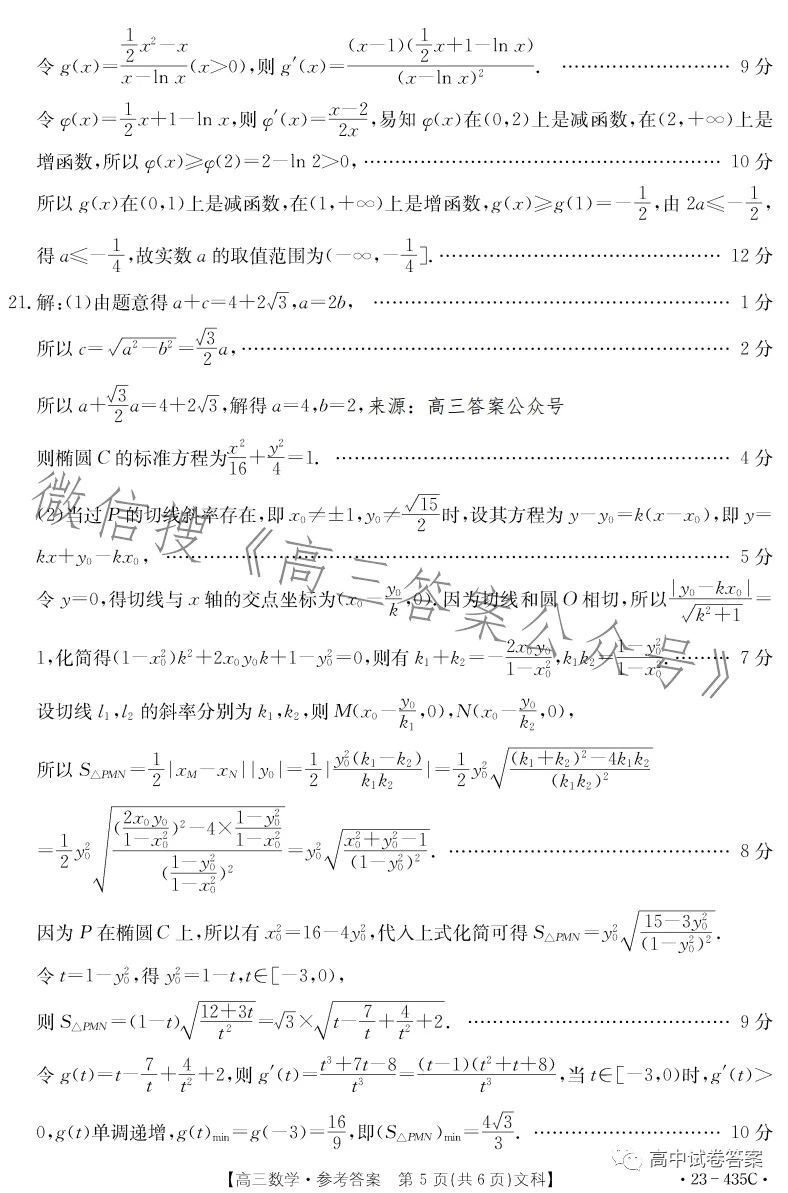 令 g(x)=\frac{\frac{1}{2}x²-x}{x-ln x}(x>0),则 g′(x)=\frac{(x-1)(\frac{1}{2}x+1-ln x)}{(x-ln x)²}. ………………………… 9 分
令 φ(x)=\frac{1}{2}x+1-ln x,则 φ′(x)=\frac{x-2}{2x},易知 φ(x)在(0,2)上是减函数,在(2,+∞)上是
增函数,所以 φ(x)≥φ(2)=2-ln 2>0, ………………………… 10 分
所以 g(x)在(0,1)上是减函数,在(1,+∞)上是增函数,g(x)≥g(1)=-\frac{1}{2},由 2a≤-\frac{1}{2},
得 a≤-\frac{1}{4},故实数 a 的取值范围为(-∞,-\frac{1}{4}]. ………………………… 12 分
21.解:(1)由题意得 a+c=4+2√3,a=2b, ………………………… 1 分
所以 c=\sqrt{a²-b²}=\frac{√3}{2}a, ………………………… 2 分
所以 a+\frac{√3}{2}a=4+2√3,解得 a=4,b=2,来源:高三答案公众号
则椭圆 C 的标准方程为\frac{x²}{16}+\frac{y²}{4}=1. ………………………… 4 分
(2)当过 P 的切线斜率存在,即 x₀≠±1,y₀≠\frac{√15}{2}时,设其方程为 y-y₀=k(x-x₀),即 y=
kx+y₀-kx₀, ………………………… 5 分
令 y=0,得切线与 x 轴的交点坐标为(x₀-\frac{y₀}{k},0).因为切线和圆 O 相切,所以\frac{|y₀-kx₀|}{\sqrt{k²+1}}=
1,化简得(1-x₀²)k²+2x₀y₀k+1-y₀²=0,则有 k₁+k₂=-\frac{2x₀y₀}{1-x₀²},k₁k₂=\frac{1-y₀²}{1-x₀²}. ……… 7 分
设切线 l₁,l₂ 的斜率分别为 k₁,k₂,则 M(x₀-\frac{y₀}{k₁},0),N(x₀-\frac{y₀}{k₂},0),
所以 S△PMN=\frac{1}{2}|x_M-x_N||y₀|=\frac{1}{2}|\frac{y₀²(k₁-k₂)}{k₁k₂}|=\frac{1}{2}y₀²\sqrt{\frac{(k₁+k₂)²-4k₁k₂}{(k₁k₂)²}}
=\frac{1}{2}y₀²\sqrt{\frac{(\frac{2x₀y₀}{1-x₀²})²-4×\frac{1-y₀²}{1-x₀²}}{(\frac{1-y₀²}{1-x₀²})²}}=y₀²\sqrt{\frac{x₀²+y₀²-1}{(1-y₀²)²}}. ………………………… 8 分
因为 P 在椭圆 C 上,所以有 x₀²=16-4y₀²,代入上式化简可得 S△PMN=y₀²\sqrt{\frac{15-3y₀²}{(1-y₀²)²}}.
令 t=1-y₀²,得 y₀²=1-t,t∈[-3,0),
则 S△PMN=(1-t)\sqrt{\frac{12+3t}{t²}}=√3×\sqrt{t-\frac{7}{t}+\frac{4}{t²}+2}. ………………………… 9 分
令 g(t)=t-\frac{7}{t}+\frac{4}{t²}+2,则 g′(t)=\frac{t³+7t-8}{t³}=\frac{(t-1)(t²+t+8)}{t³},当 t∈[-3,0)时,g′(t)>
0,g(t)单调递增,g(t)min=g(-3)=\frac{16}{9},即(S△PMN)min=\frac{4√3}{3}. ………………………… 10 分
微信搜《高三答案公众号》
高中试卷答案
【高三数学·参考答案 第 5 页(共 6 页)文科】 ·23-435C·